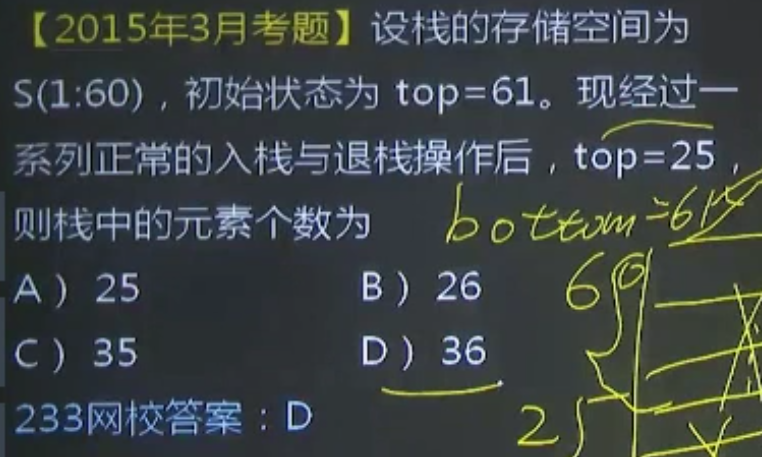 【2015年3月考题】设栈的存储空间为
S(1:60)，初始状态为 top=61。现经过一
系列正常的入栈与退栈操作后，top=25，
则栈中的元素个数为
bottom=61
A） 25 B） 26
60
C） 35 D） 36
25
233网校答案：D